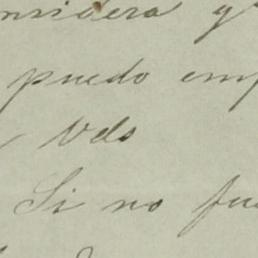 nsidera y
puedo emp
Vds
Si no fue